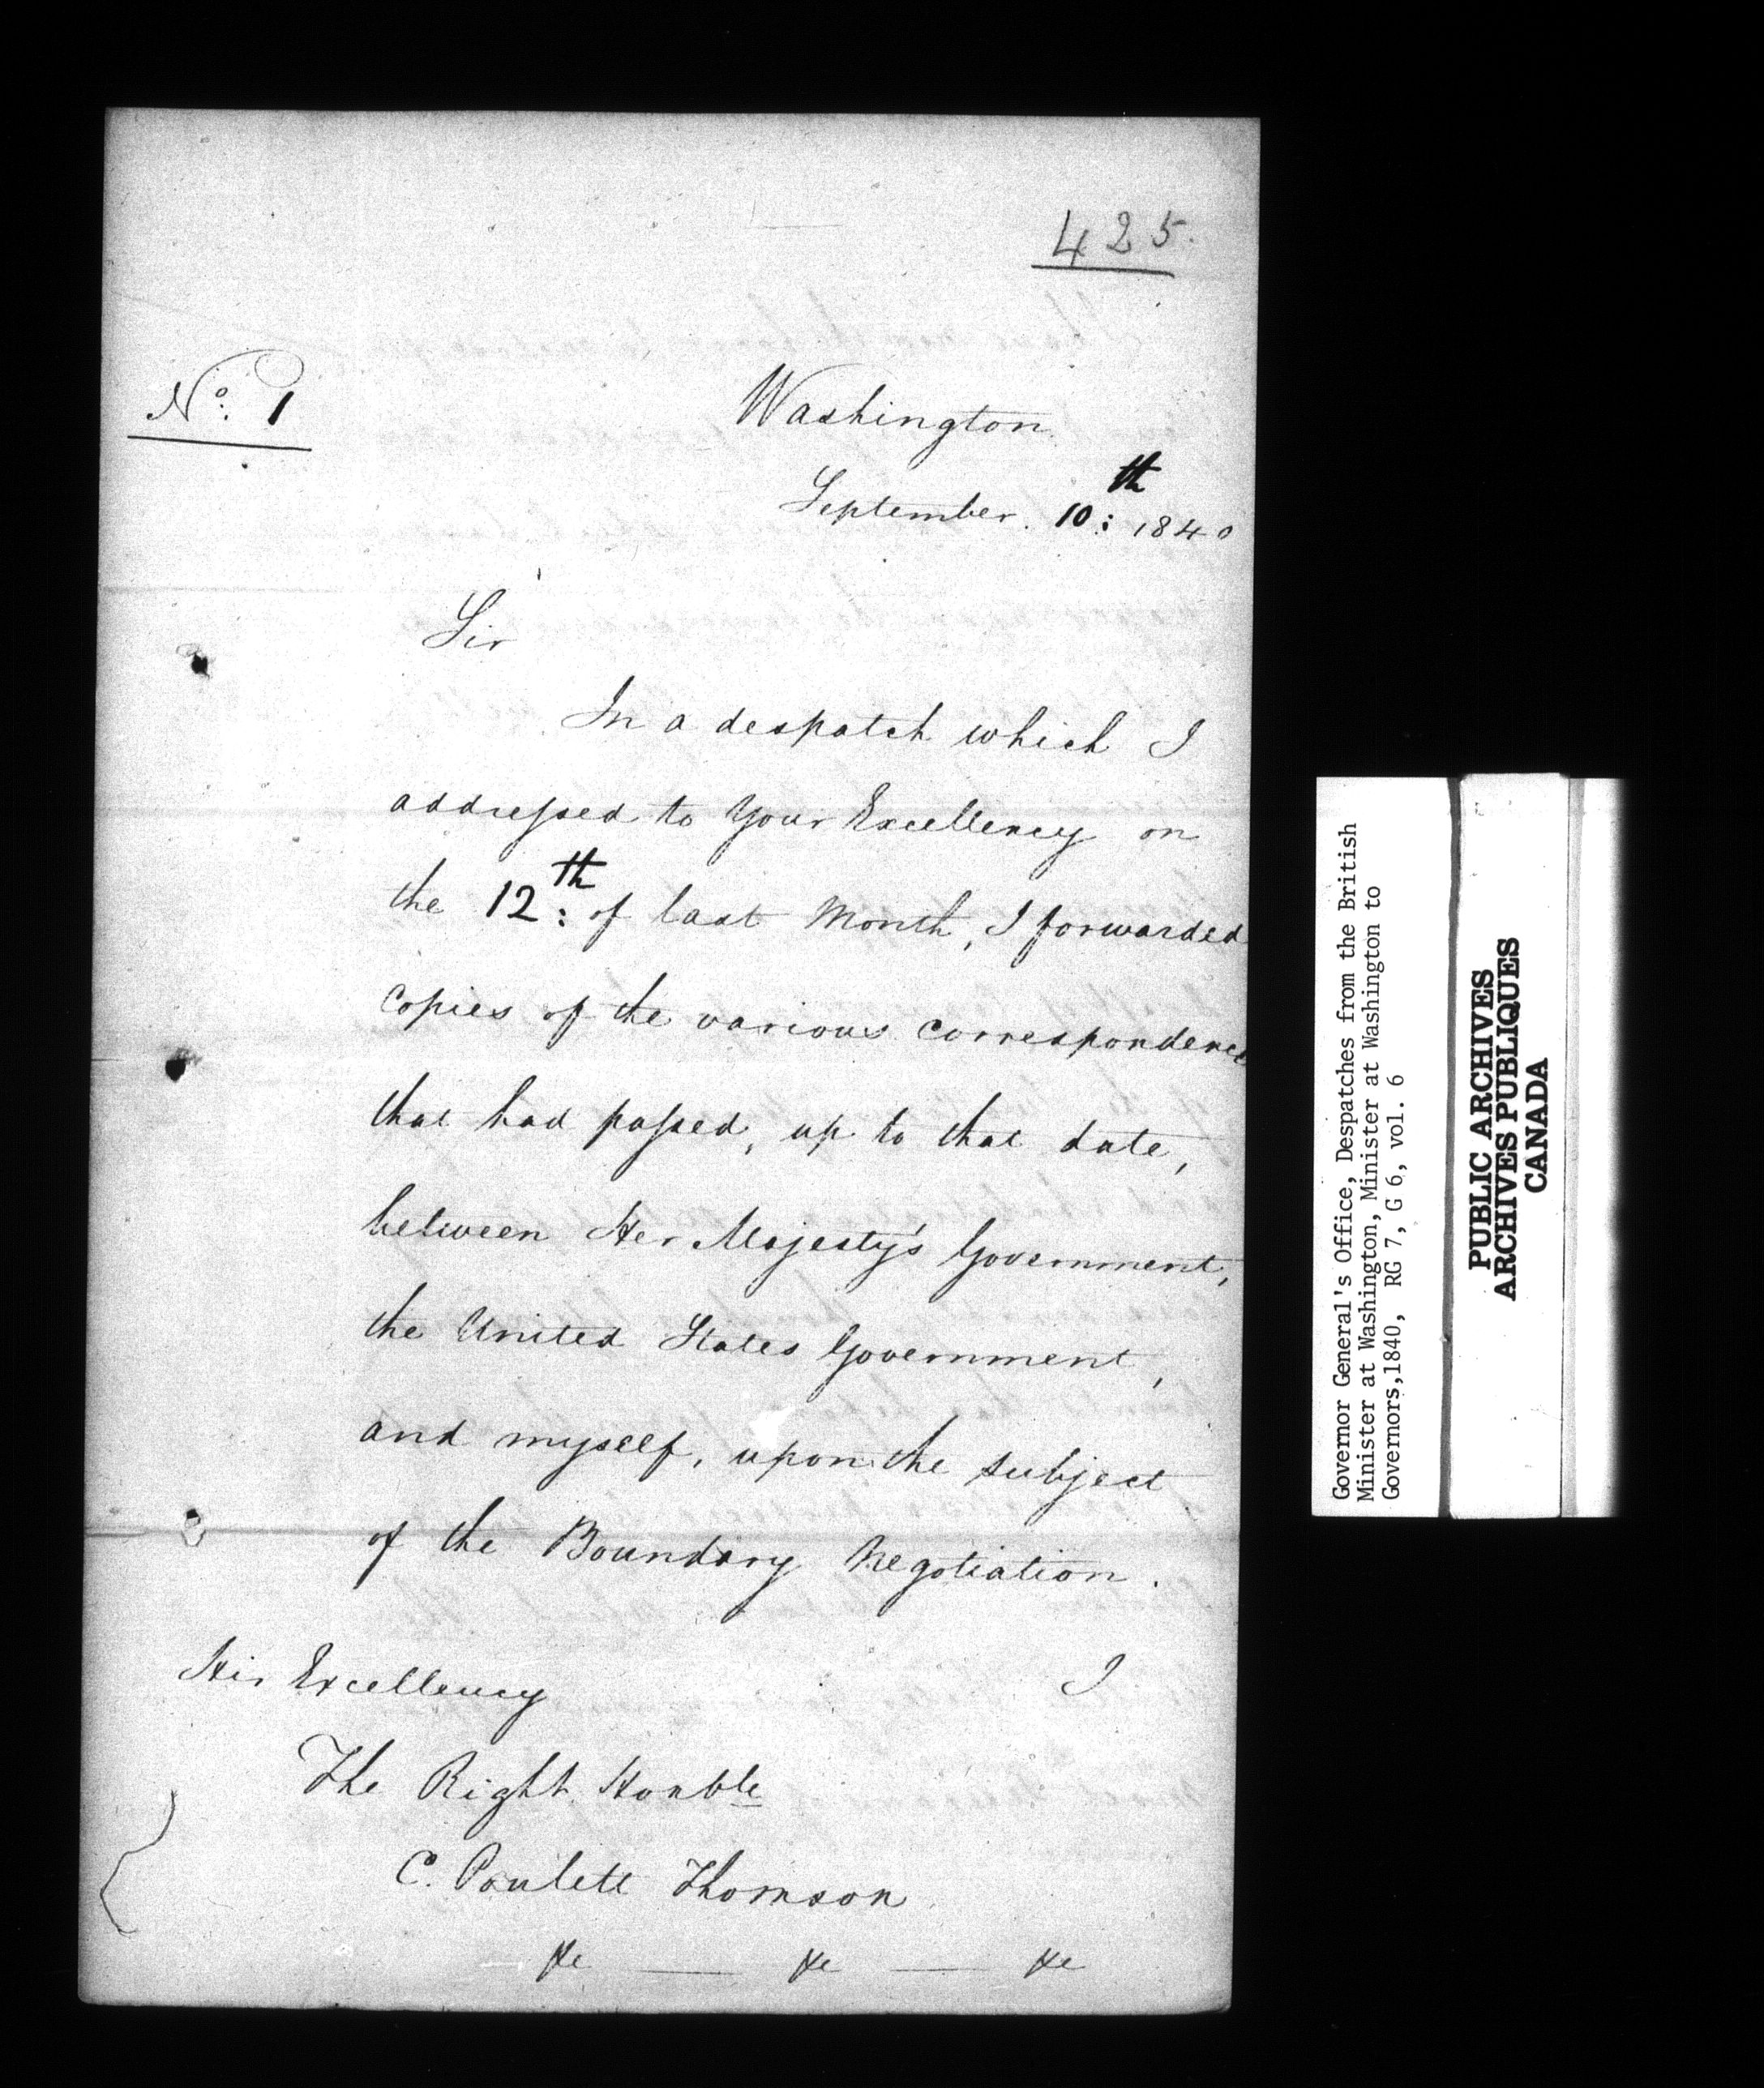 425.
No. 1
Washington
September. 10th: 1840
Sir
In a despatch which I
addressed to Your Excellency on
the 12th: of last Month, I forwarded
Copies of the various correspondence
that had passed, up to that date,
between Her Majesty's Government,
the United States Government,
and myself, upon the subject
of the Boundary Negotiation.
I
His Excellency
The Right Honble
C. Poulett Thomson
&c — &c — &c
Governor General's Office, Despatches from the British
Minister at Washington, Minister at Washington to
Governors,1840, RG 7, G 6, vol. 6
PUBLIC ARCHIVES
ARCHIVES PUBLIQUES
CANADA